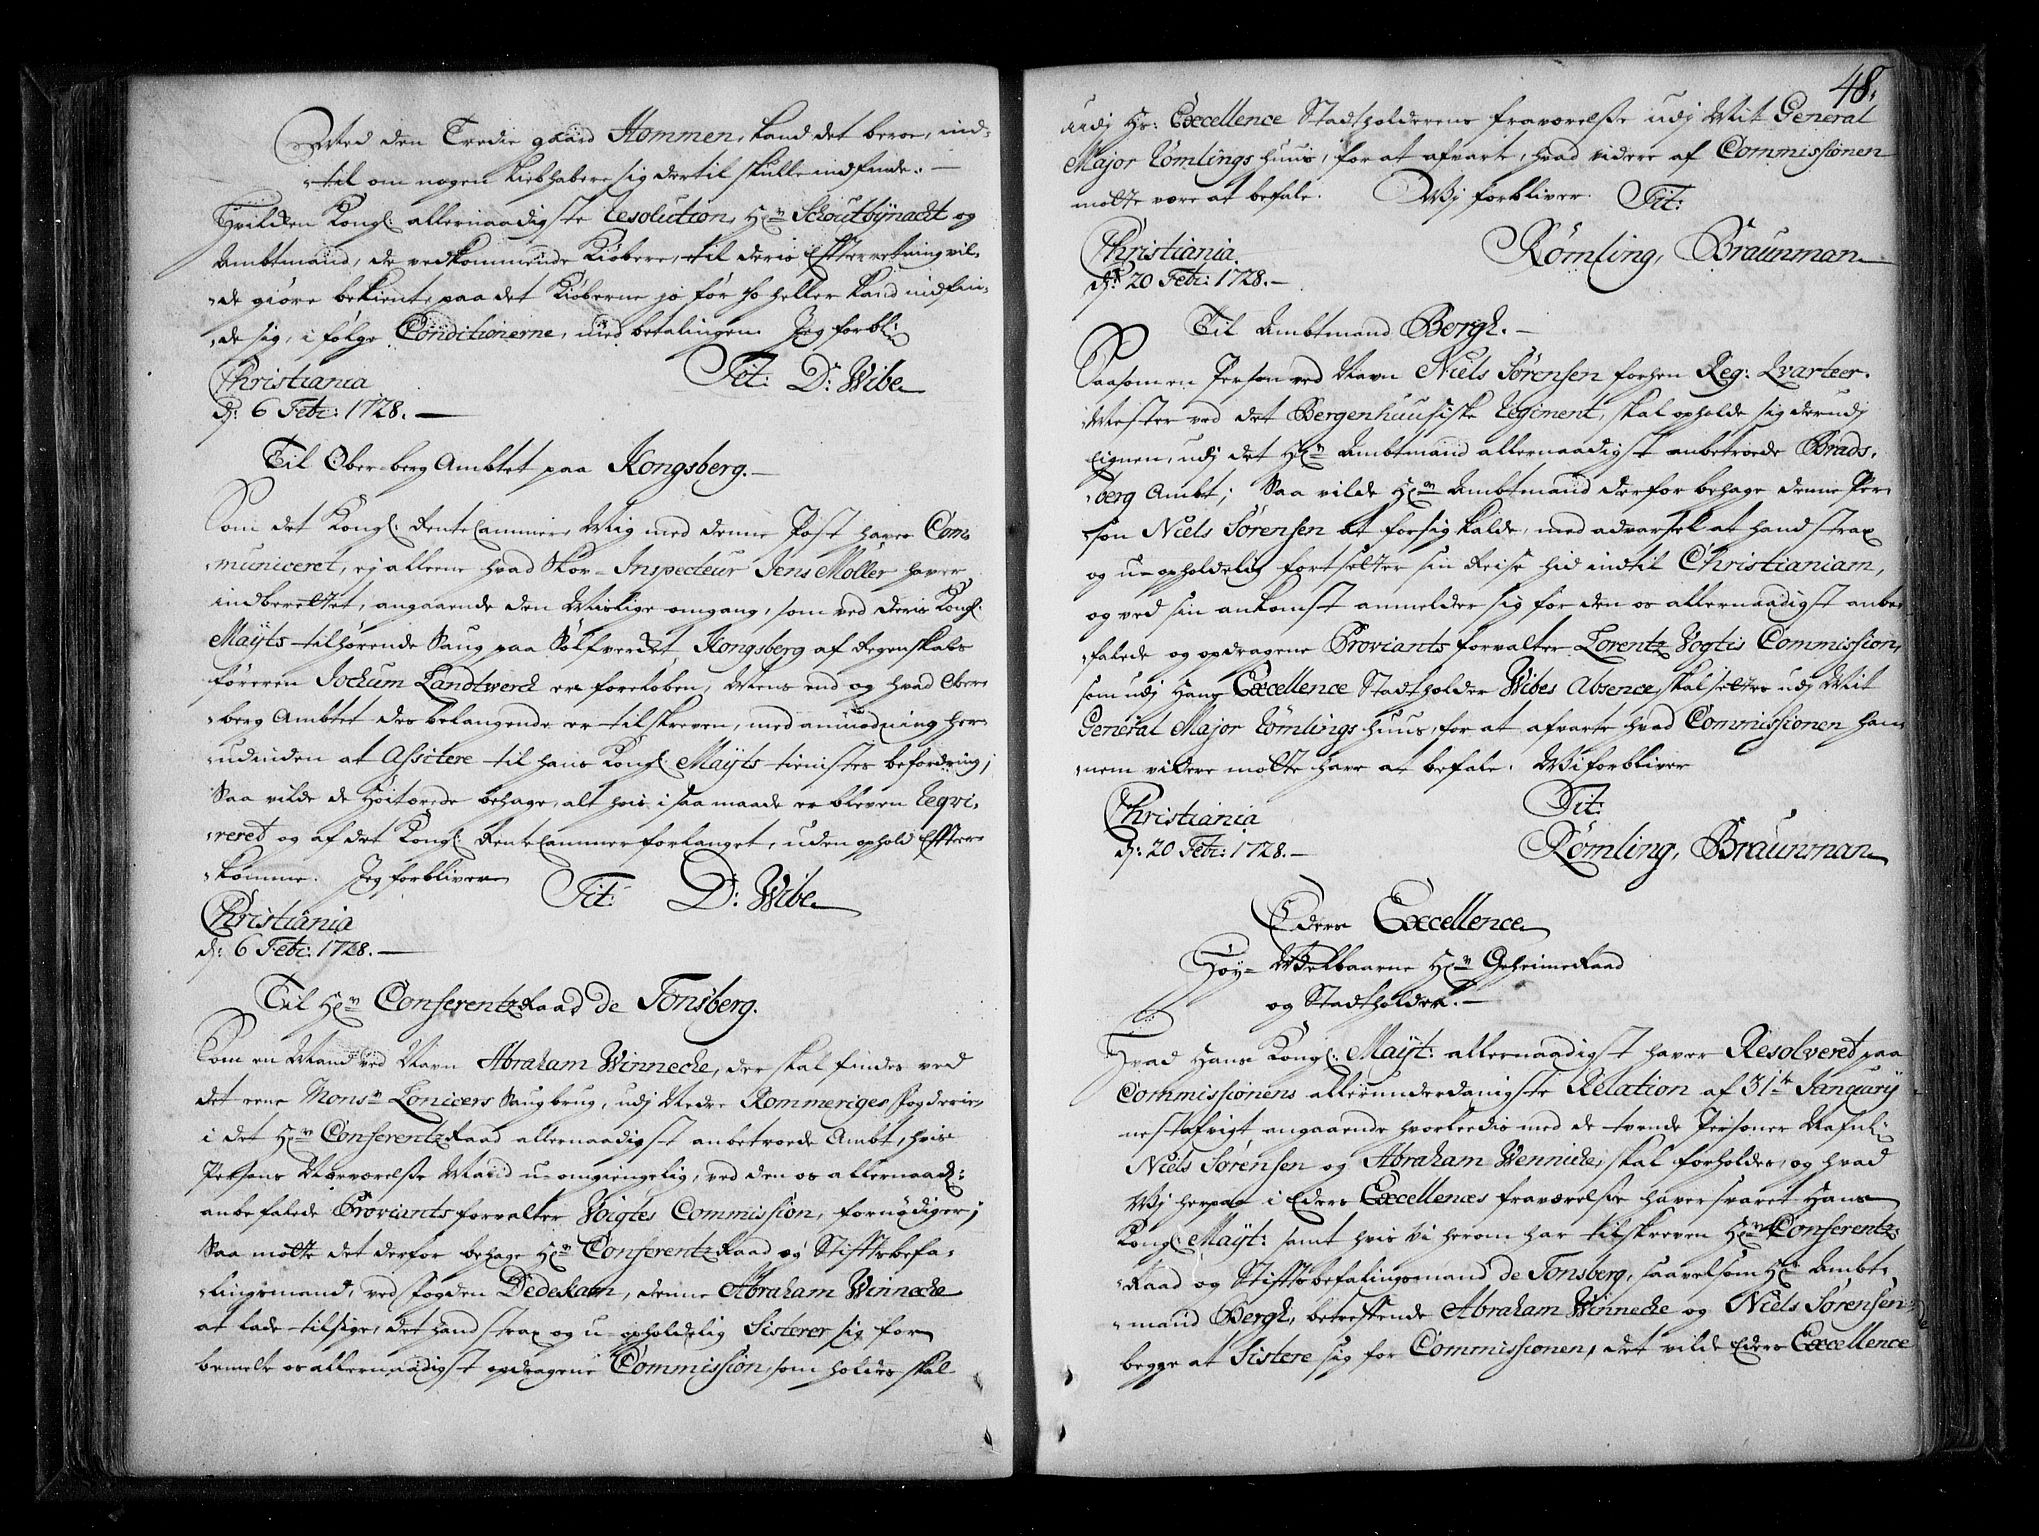 Med den Tredie gaard Hommen, kand det beroe, ind-
-til om nogen Liebhabere sig dertil skulle indfinde.
Hvilken Kongl: allernaadigste Resolution, Hr Schoutbÿnacht og
Ambtmand, de vedkommende Kiøbere, til deris Efterretning vil-
-de giøre bekient, paa det Kiøberne jo før jo heller kand indfin-
-de sig, i følge Conditionerne, med betalingen. Jeg forbl:
Christiania Tit: D: Wibe
d: 6 Febr: 1728.
Til Ober-berg Ambtet paa Kongsberg.
Som det Kongl: Rente Cammer, Mig med denne Post haver Com
-municeret, ej alleene hvad Skov-Inspecteur Jens Møller haver
indberettet, angaaende den Mislige omgang, som ved deris Kongl:
Mayts tilhørende Saug paa Sølfverket Kongsberg af Regenskabs
føreren Jochum Landtwerch er foreløben, Mens end og hvad Ober-
-berg Ambtet des belangende er tilskreven, med anmodning her-
udinden at Assistere til hans Kongl: Mayts tienistes befordring;
Saa vilde de Høitærede behage, alt hvis i saa maade er bleven Reqvi-
-reret og af det Kongl: Rente Cammer forlanget, uden ophold Effter-
-komme. Jeg forbliver Tit: D: Wibe
Christiania
d: 6 Febr: 1728.
Til Hr Conferentz Raad de Tonsberg.
Som en Mand ved Navn Abraham Winneche, der skal findes ved
det eene Monsr Lonicers Saugbrug, udj Nedre Rommeriges Fogderie
i det Hr Conferentz Raad allernaadigst anbetroede Ambt, hvis
Persons Nærværelsse Maatte u-omgiengelig, ved den os allernaad:
anbefalede Proviants forvalter Voigtes Commission, fornødiges;
Saa motte det derfor behage Hr Conferentz Raad og Stifftsbefa-
-lingsmand, ved Fogden Dedekam, denne Abraham Winneche
at lade tilsige, det hand strax og u-opholdelig Sisterer sig for
bemelte os allernaadigst opdragene Commission, som holdes skal
48.
udj Hr: Excellence Stadtholderens fraværelsse udj Mit General
Major Rømlings huus, for at afvarte, hvad videre af Commissionen
motte være at befale. Wj forbliver Tit:
Christiania Rømling, Braunman
d: 20 Febr: 1728.
Til Ambtmand Bergh.
Saasom en Person ved Navn Niels Sørensen forhen Reg: Qvarteer-
-Mester ved det Bergenhuusiske Regiment, skal opholde sig derudj
Eignen, udj det Hr Ambtmand allernaadigst anbetroede Brads-
-berg Ambt; Saa vilde Hr Ambtmand derfor behage denne Per-
-son Niels Sørensen at for sig kalde, med advarsel at hand strax
og u-opholdelig fortsetter sin Reise hid indtil Christianiam,
og ved sin ankomst anmelder sig for den os allernaadigst anbe-
-falede og opdragene Proviants forvalter Lorentz Vogtis Commission,
som udj Hans Excellence Stadtholder Wibes Absence, skal settes udj Mit
General Major Rømlings huus, for at afvarte hvad Commissionen ham-
-nem videre motte have at befale. Wi forbliver
Christiania Tit:
d: 20 Febr: 1728. Rømling, Braunman
Eders Excellence
Høy-Welbaarne Hr Geheime Raad
og Stadtholder.
Hvad Hans Kongl: Mayt: allernaadigst haver Resolveret paa
Commissionens allerunderdanigste Relation af 31te Januarÿ
nestafvigt angaaende hvorledis med de tvende Personer Nafnl:
Niels Sørensen og Abraham Wennicke, skal forholdes, og hvad
Wj herpaa i Eders Excellences fraværelsse haver svaret Hans
Kongl: Mayt: samt hvis Vi herom har tilskreven Hr Conferentz-
-Raad og Stifftsbefalingsmand de Tonsberg, saavelsom Hr Ambt-
-mand Bergh, betreffende Abraham Winneche og Niels Sørensen
begge at Sistere sig for Commissionen, det vilde Eders Excellence